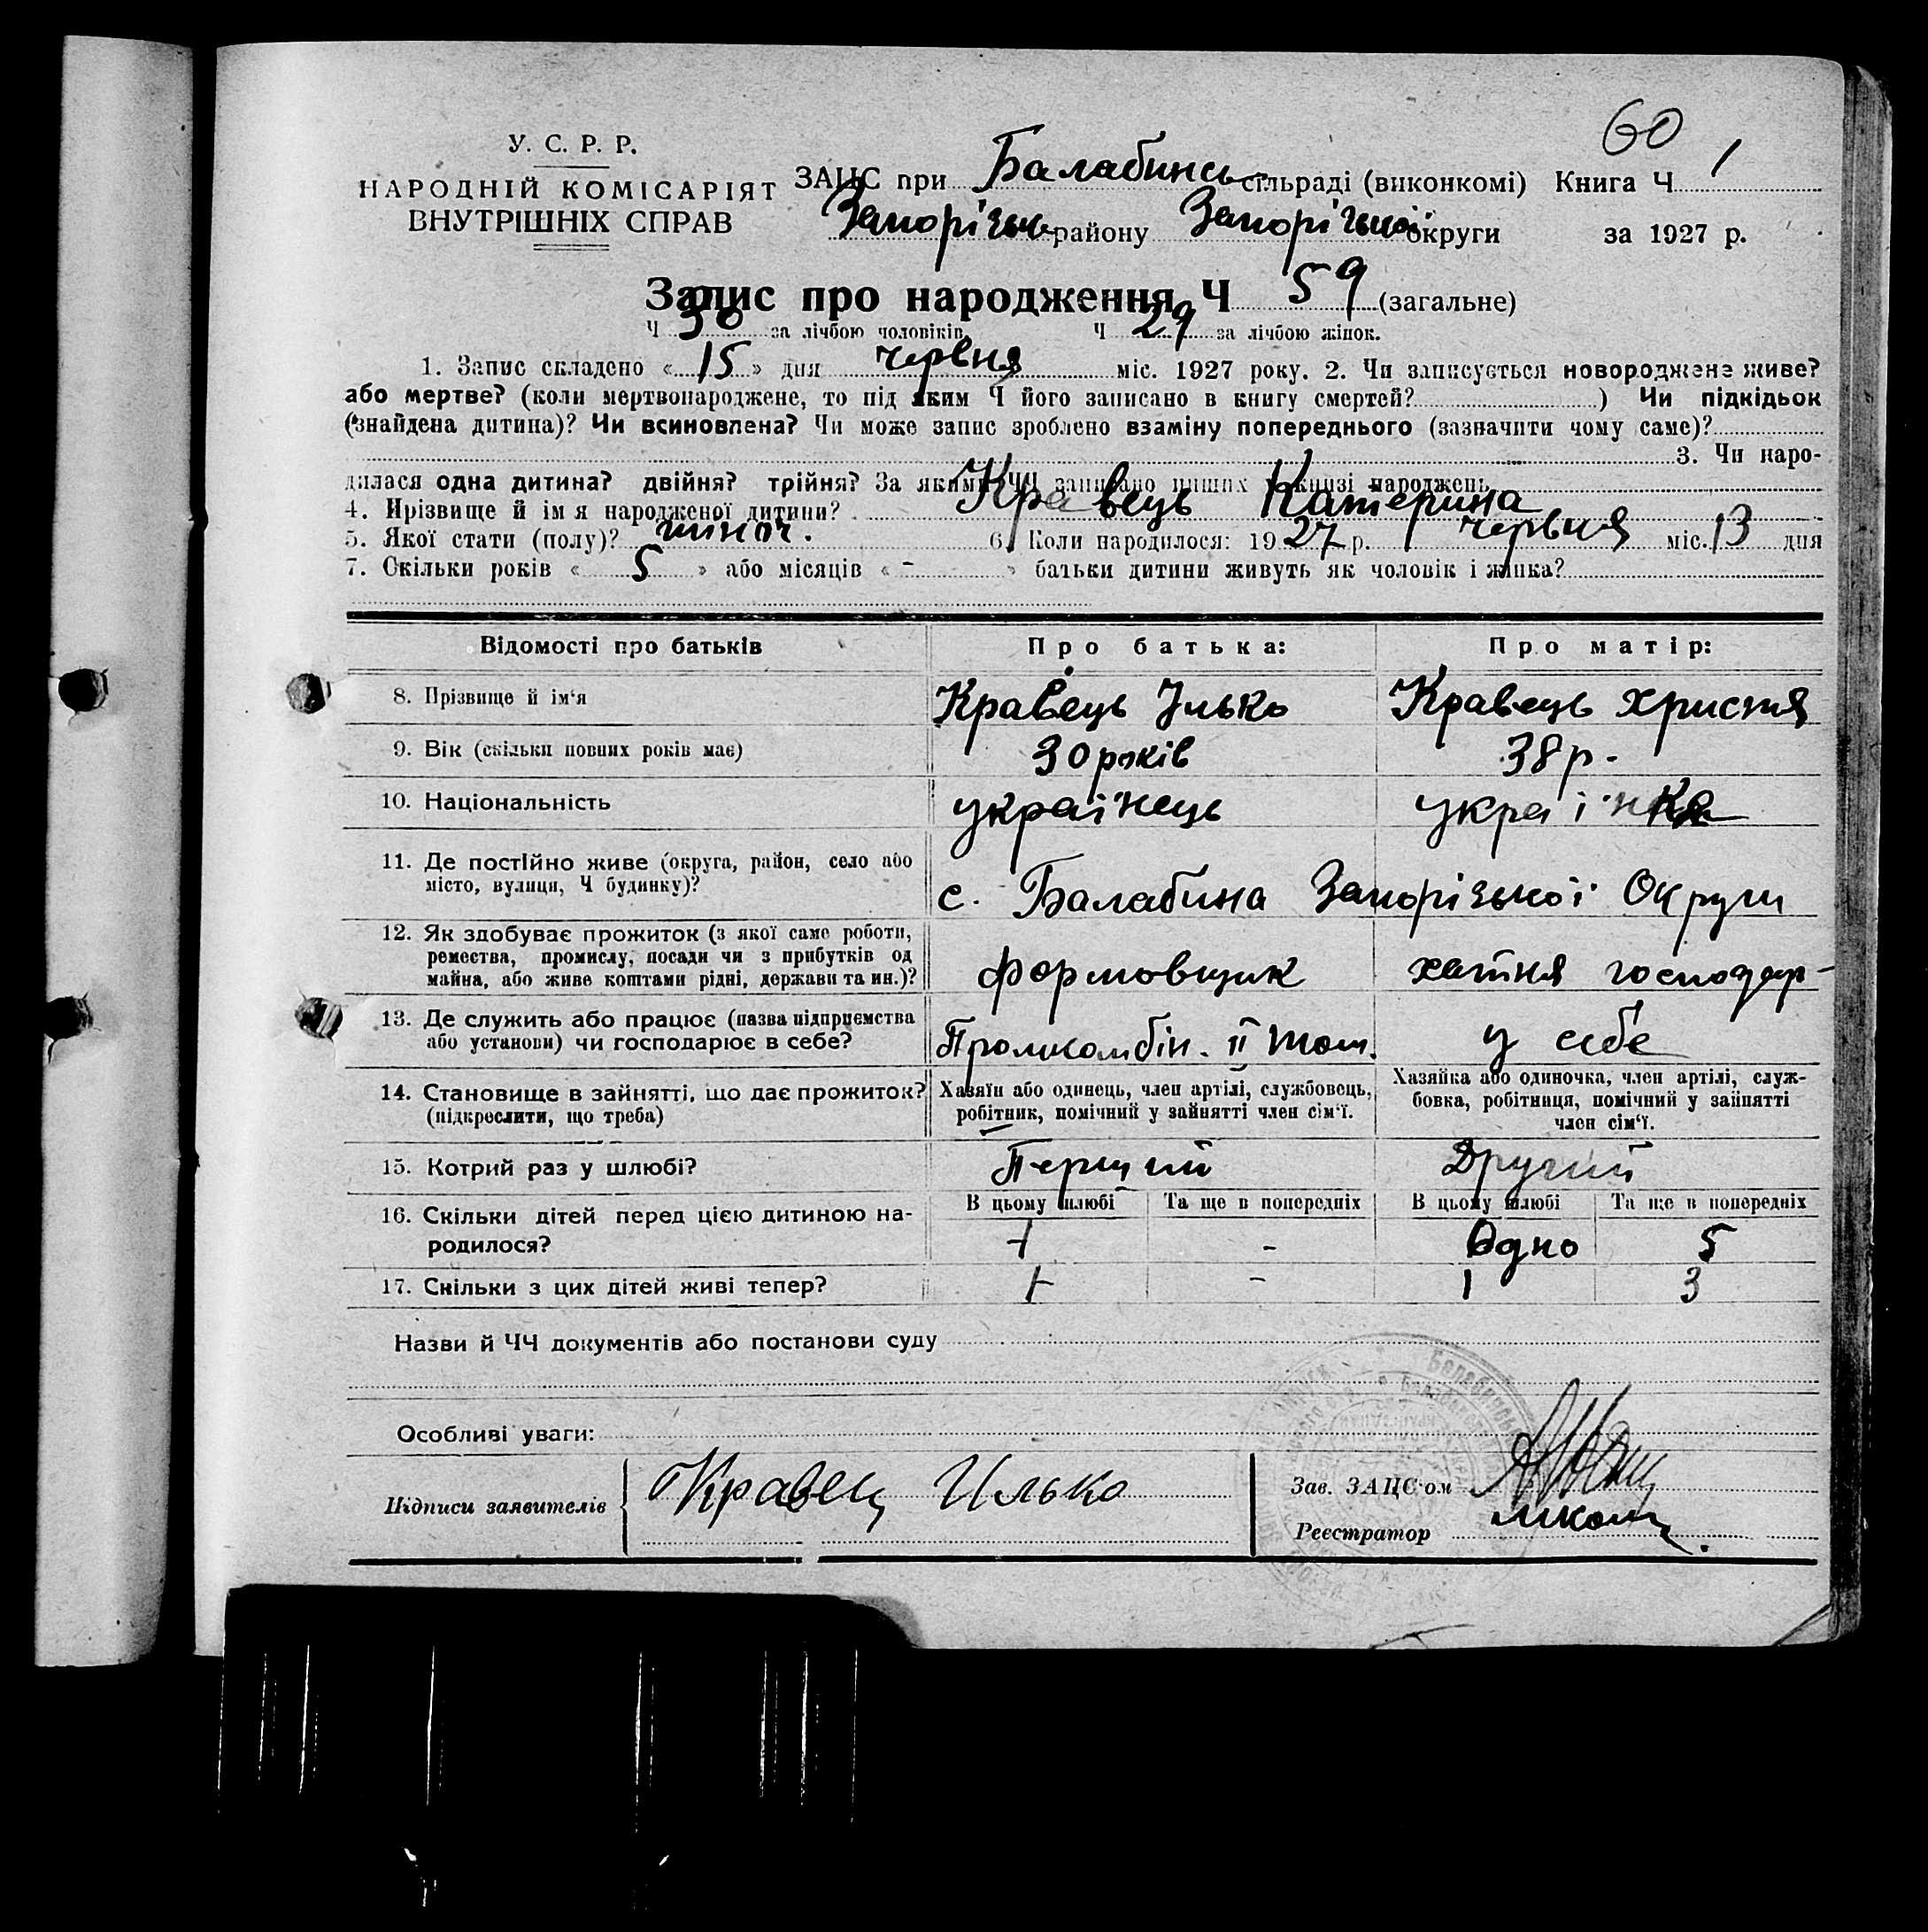 60
У. С. Р. Р.
НАРОДНІЙ КОМІСАРІЯТ
ВНУТРІШНІХ СПРАВ
ЗАЦС при Балабинсь сільраді (виконкомі) Книга Ч 1
Запорізьк району Запорізької округи за 1927 р.
Запис про народження Ч 59 (загальне)
Ч 30 за лічбою чоловіків Ч 29 за лічбою жінок.
1. Запис складено « 15 » дня червня міс. 1927 року. 2. Чи записується новороджене живе?
або мертве? (коли мертвонароджене, то під яким Ч його записано в книгу смертей? ) Чи підкідьок
(знайдена дитина)? Чи всиновлена? Чи може запис зроблено взаміну попереднього (зазначити чому саме)?
3. Чи наро-
дилася одна дитина? двійня? трійня? За якими ЧЧ записано инших в книзі народжень
4. Прізвище й ім я народженої дитини? Кравець Катерина
5. Якої стати (полу)? жіноч. 6. Коли народилося: 1927 р. червня міс. 13 дня
7. Скільки років « 5 » або місяців « - » батьки дитини живуть як чоловік і жінка?
Відомості про батьків Про батька: Про матір:
8. Прізвище й ім'я Кравець Ілько Кравець Христя
9. Вік (скільки повних років має) 30 років 38 р.
10. Національність українець українка
11. Де постійно живе (округа, район, село або
місто, вулиця, Ч будинку)? с. Балабина Запорізької Округи
12. Як здобуває прожиток (з якої саме роботи,
ремества, промислу, посади чи з прибутків од
майна, або живе коштами рідні, держави та ин.)? формовщик хатня господар-
13. Де служить або працює (назва підприємства
або установи) чи господарює в себе? Промкомбін. ІІ у себе
14. Становище в зайнятті, що дає прожиток?
(підкреслити, що треба)
Хазяїн або одинець, член артілі, службовець,
робітник, помічний у зайнятті член сім'ї.
Хазяйка або одиночка, член артілі, служ-
бовка, робітниця, помічний у зайнятті
член сім'ї.
15. Котрий раз у шлюбі? Перший Другий
В цьому шлюбі Та ще в попередніх В цьому шлюбі Та ще в попередніх
16. Скільки дітей перед цією дитиною на-
родилося? 1 - Одно 5
17. Скільки з цих дітей живі тепер? 1 - 1 3
Назви й ЧЧ документів або постанови суду
Особливі уваги:
Підписи заявителів Кравец Илько
Зав. ЗАЦС-ом
Реєстратор